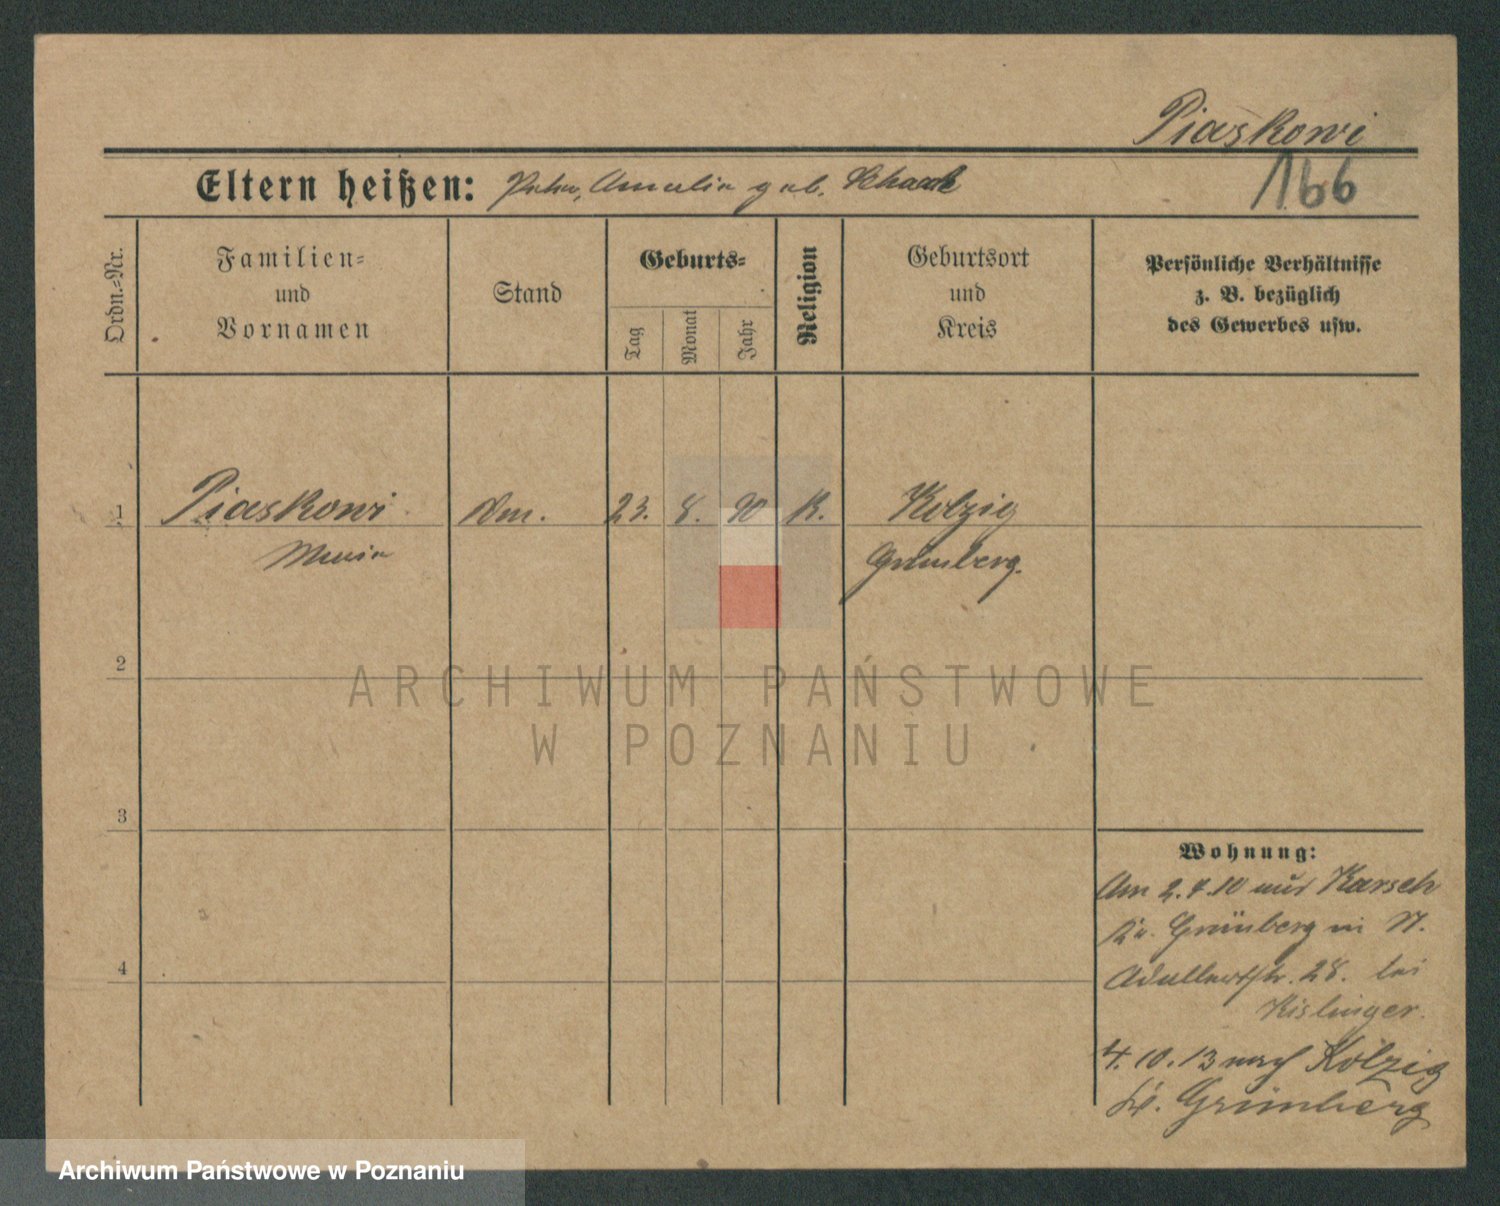 Piaskowi
166
Eltern heißen: Peter, Amalia geb. Schack
Ordn.-Nr.
Familien-
und
Vornamen
Stand
Geburts-
Tag
Monat
Jahr
Religion
Geburtsort
und
Kreis
Persönliche Verhältnisse
z. B. bezüglich
des Gewerbes usw.
1 Piaskowi 23. 8. 90 K. Kolzig
Maria Grünberg.
2
ARCHIWUM PAŃSTWOWE
W POZNANIU
3
Wohnung:
Am 2.4.10 aus Karsch
Kr. Grünberg in
28. bei
Kislinger.
4
4.10.13 nach Kolzig
Kr. Grünberg
Archiwum Państwowe w Poznaniu